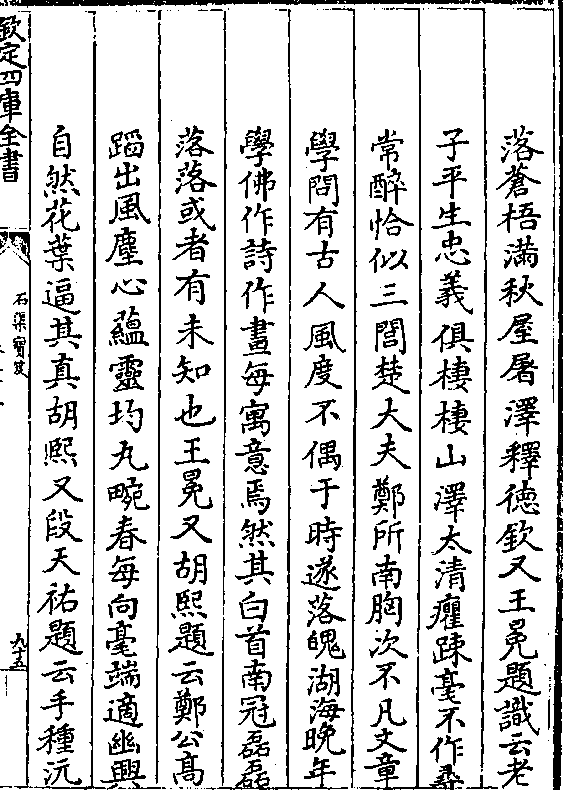 落蒼梧滿秋屋屠澤釋徳欽又王冕題識云老
子平生忠義俱棲棲山澤太清癯踈毫不作尋
常醉恰似三閭楚大夫鄭所南胸次不凡文章
學問有古人風度不偶于時遂落魄湖海晚年
學佛作詩作畫每寓意焉然其白首南冠磊磊
落落或者有未知也王冕又胡熙題云鄭公髙
蹈出風塵心藴靈均九畹春每向毫端適幽興
自然花葉逼其真胡熙又段天祐題云手種沅
欽定四庫全書
石渠寶笈
九十五